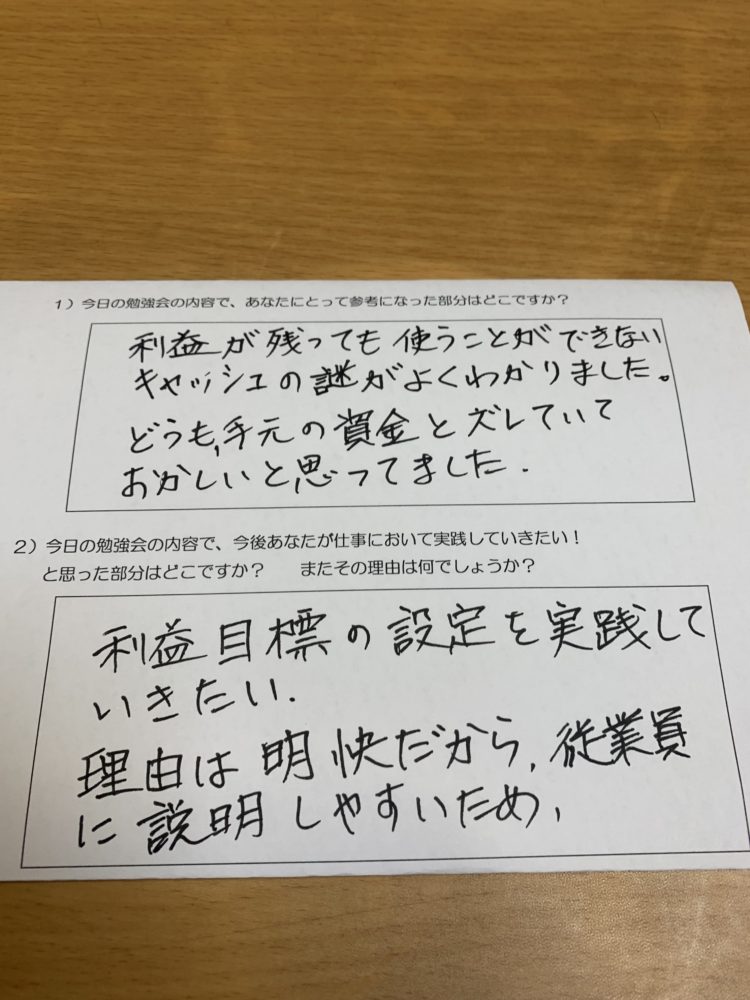 1）今日の勉強会の内容で、あなたにとって参考になった部分はどこですか？
利益が残っても使うことができない
キャッシュの謎がよくわかりました。
どうも,手元の資金とズレていて
おかしいと思ってました.
2）今日の勉強会の内容で、今後あなたが仕事において実践していきたい！
と思った部分はどこですか？　またその理由は何でしょうか？
利益目標の設定を実践して
いきたい.
理由は明快だから,従業員
に説明しやすいため,